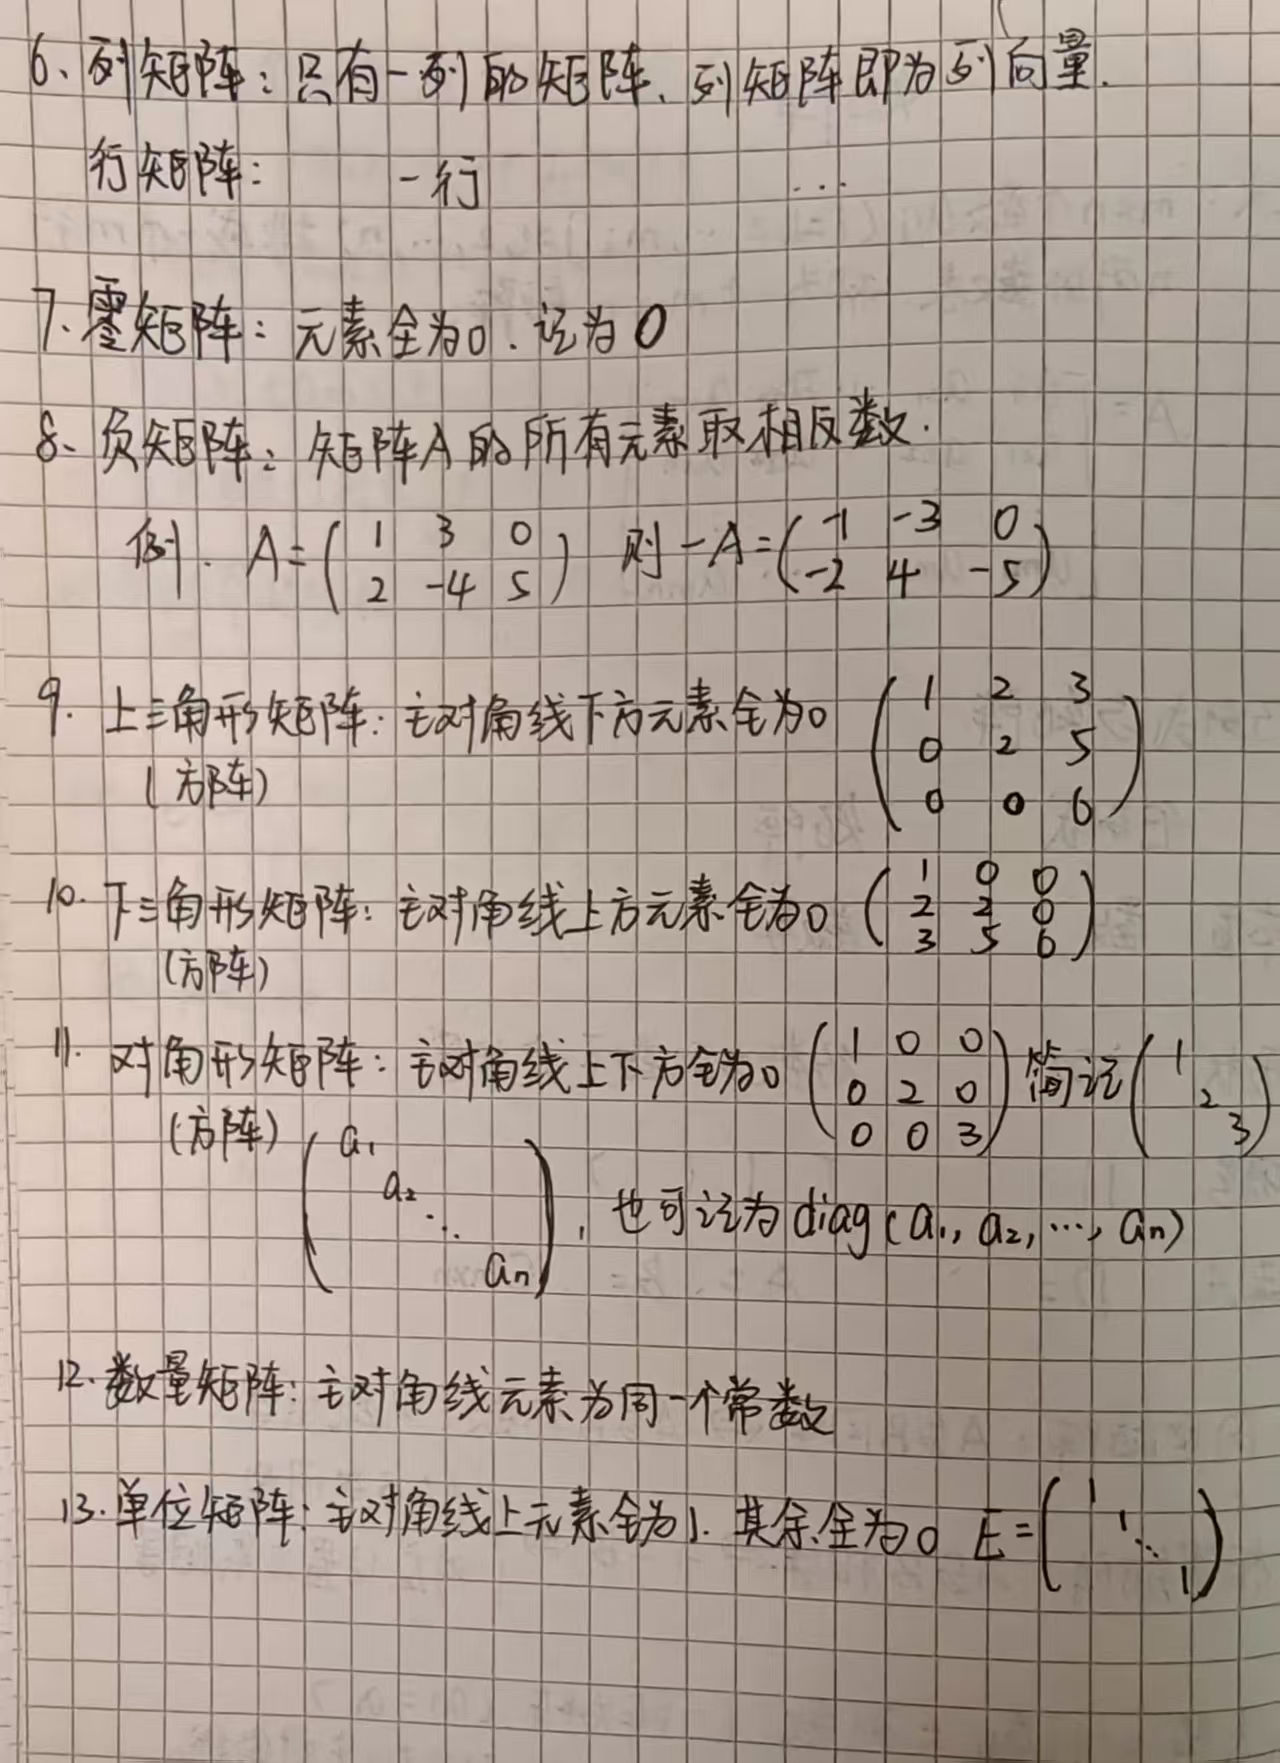 6、列矩阵：只有一列的矩阵、列矩阵即为列向量.
行矩阵： 一行 ...
7. 零矩阵：元素全为0. 记为 0
8、负矩阵：矩阵A的所有元素取相反数.
例. A = ( 1 3 0 ) 则 -A = ( -1 -3 0 )
2 -4 5 -2 4 -5
9. 上三角形矩阵：主对角线下方元素全为0 ( 1 2 3
(方阵) 0 2 5
0 0 6 )
10. 下三角形矩阵：主对角线上方元素全为0 ( 1 0 0
(方阵) 2 2 0
3 5 6 )
11. 对角形矩阵：主对角线上下方全为0 ( 1 0 0 ) 简记 ( 1
0 2 0 2
(方阵) 0 0 3 3 )
( a₁
a₂
⋱ , 也可记为 diag(a₁, a₂, ···, aₙ)
aₙ )
12. 数量矩阵：主对角线元素为同一个常数
13. 单位矩阵：主对角线上元素全为1. 其余全为0 E = ( 1
1
⋱
1 )